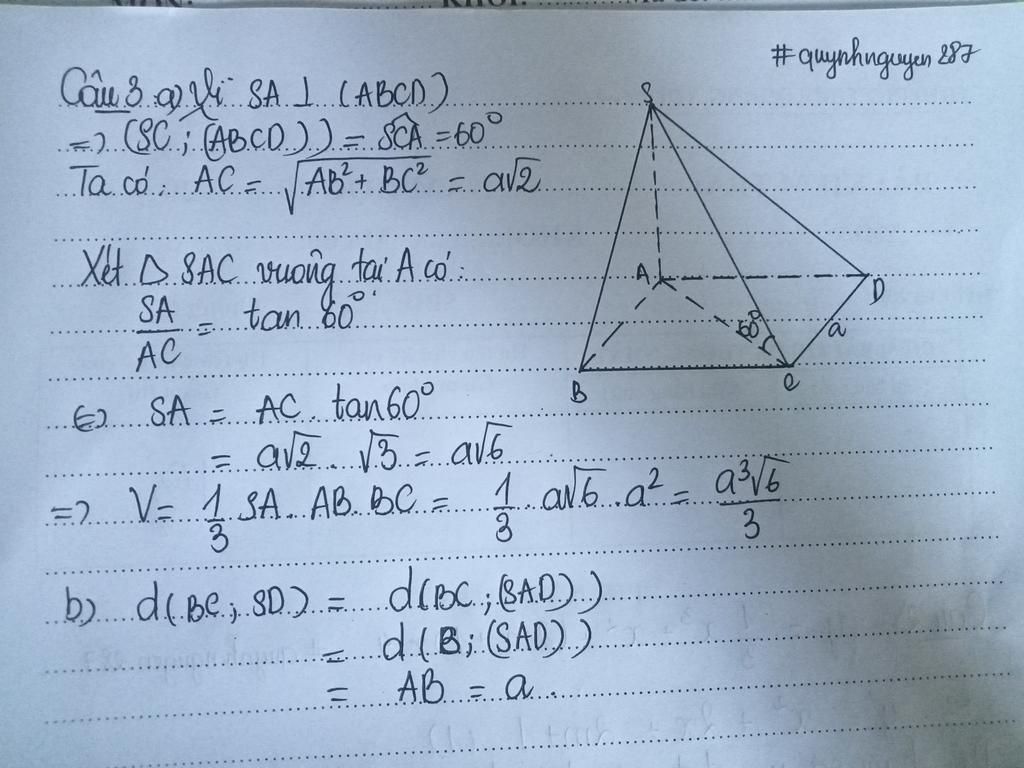 #quynhnguyen 287
Câu 3 a) Vì SA ⊥ (ABCD)
=> (SC ; (ABCD)) = SCA = 60°
Ta có: AC = √(AB² + BC²) = a√2
Xét Δ SAC vuông tại A có:
SA/AC = tan 60°
<=> SA = AC . tan60°
= a√2 . √3 = a√6
=> V = 1/3 SA . AB . BC = 1/3 . a√6 . a² = a³√6/3
b) d(BC ; SD) = d(BC ; (SAD))
= d(B ; (SAD))
= AB = a
S
A
D
60°
a
B
C